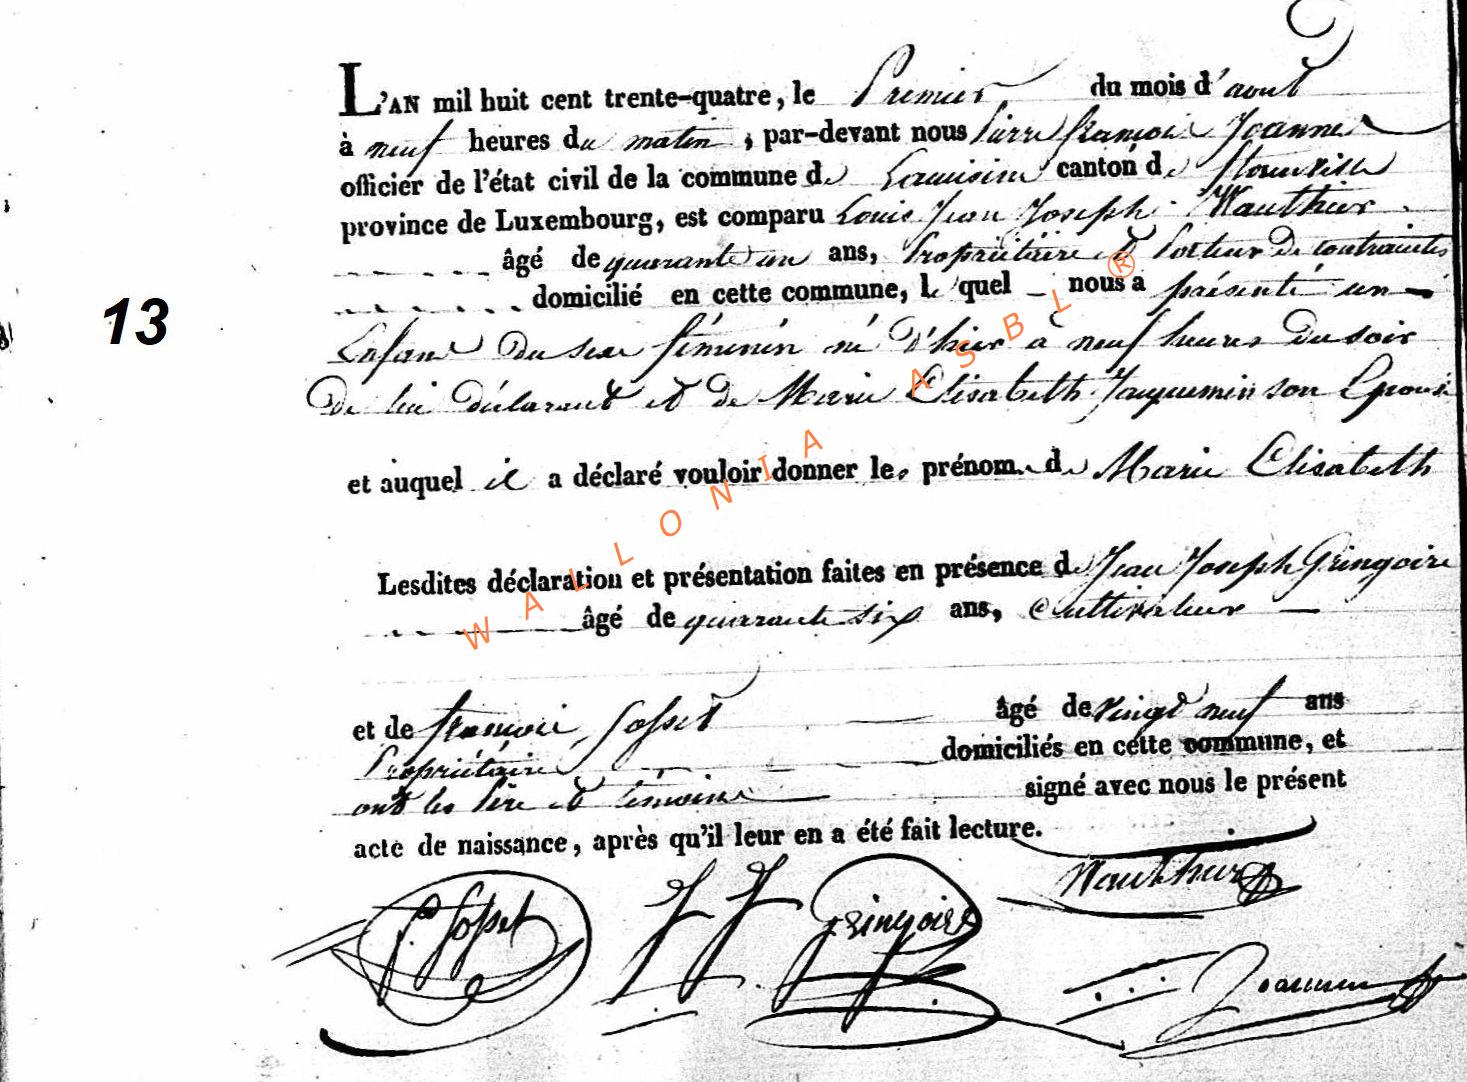 L'AN mil huit cent trente-quatre, le Premier du mois d'aout
à neuf heures du matin, par-devant nous Pierre françois Joanne
officier de l'état civil de la commune de canton de
province de Luxembourg, est comparu Louis Jean Joseph Wauthier
âgé de quarante un ans, Propriétaire et Porteur De contraintes
domicilié en cette commune, le quel nous a présenté un
Enfant Du sexe féminin né d'hier à neuf heures Du soir
De lui déclarant et de Marie Elisabeth Jaquemin son Epouse
et auquel il a déclaré vouloir donner les prénoms de Marie Elisabeth
Lesdites déclaration et présentation faites en présence de Jean Joseph Gringoire
âgé de quarante six ans, Cultivateur
et de françois Sosset âgé de vingt neuf ans
Propriétaire domiciliés en cette commune, et
ont les Père et témoins signé avec nous le présent
acte de naissance, après qu'il leur en a été fait lecture.
Wauthier
f. Sosset J J Gringoire
Joanne
13
WALLONIA ASBL ®